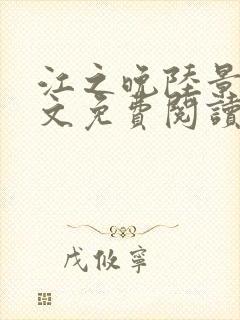 江之晚陸景
文免費閱讀
戊攸寧